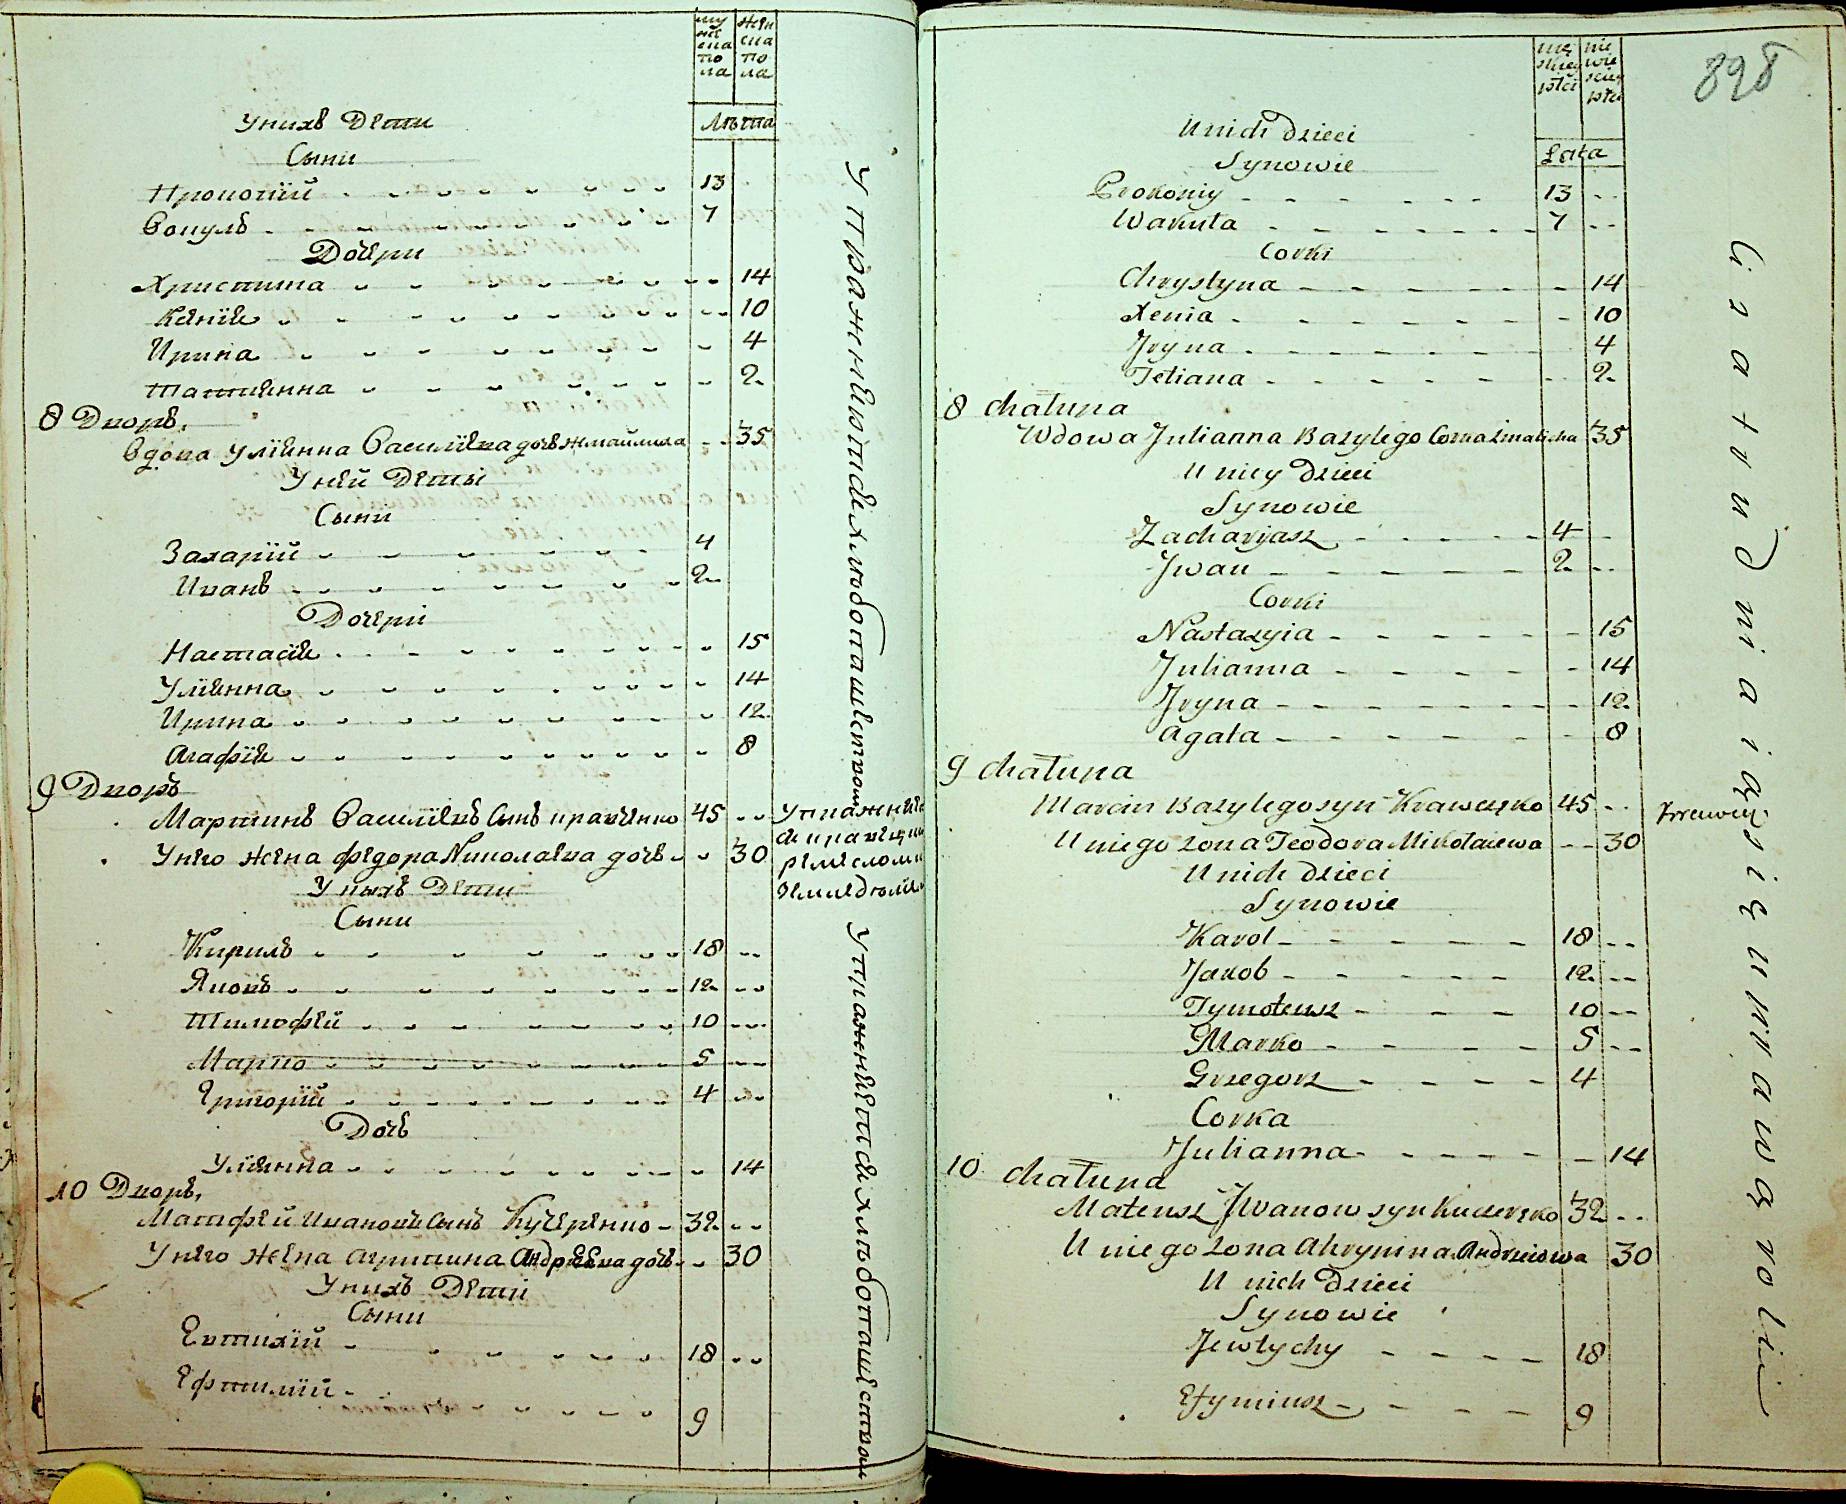 му
жс
ска
по
ла
жен
ска
по
ла
Лѣта
У нихъ Дети
Сыни
Прокопій 13
Вакулъ 7
Дочери
Христина 14
Ксенія 10
Ирина 4
Татіянна 2
8 Дворъ.
Вдова Уліянна Василіева дочь 35
У ней Дети
Сыни
Захарій 4
Иванъ 2
Дочери
Настасія 15
Уліянна 14
Ирина 12
Агафія 8
9 Дворъ
Мартинъ Василіевъ Сынъ Кравченко 45
У него жена Федора Николаева дочь 30
У ныхъ Дети
Сыни
Кирилъ 18
Яковъ 12
Тимофей 10
Марко 5
Григорій 4
Дочь
Уліянна 14
10 Дворъ,
Матфей Ивановъ Сынъ Кучеренко 32
У него жена Агрипина Андреева дочь 30
У нихъ Дети
Сыни
Евтихій 18
Ефтимій 9
Упражняется хлѣбопашеством
Упражняется
ремесломъ
Упражняется хлѣбопашеством
898
męs
kiey
płci
nie
wie
sciey
płci
Lata
U nich Dzieci
Synowie
Prokopiy 13
Wakuła 7
Corki
Chrystyna 14
Xenia 10
Jryna 4
Tetiana 2
8 chałupa
Wdowa Julianna Bazylego Corka 35
U niey Dzieci
Synowie
Zacharyasz 4
Jwan 2
Corki
Nastazyia 15
Julianna 14
Jryna 12
Agata 8
9 chałupa
Marcin Bazylego syn Krawczęko 45
U niego zona Teodora Mikołaiewa 30
U nich Dzieci
Synowie
Karol 18
Jakob 12
Tymoteusz 10
Marko 5
Grzegorz 4
Corka
Julianna 14
10 chałupa
Mateusz Jwanow syn Kuczeręko 32
U niego zona Ahrypina Andrzeiowa 30
U nich Dzieci
Synowie
Jewtychy 18
Efymiusz 9
Zatrudniaią się uprawą roli
Krawiec